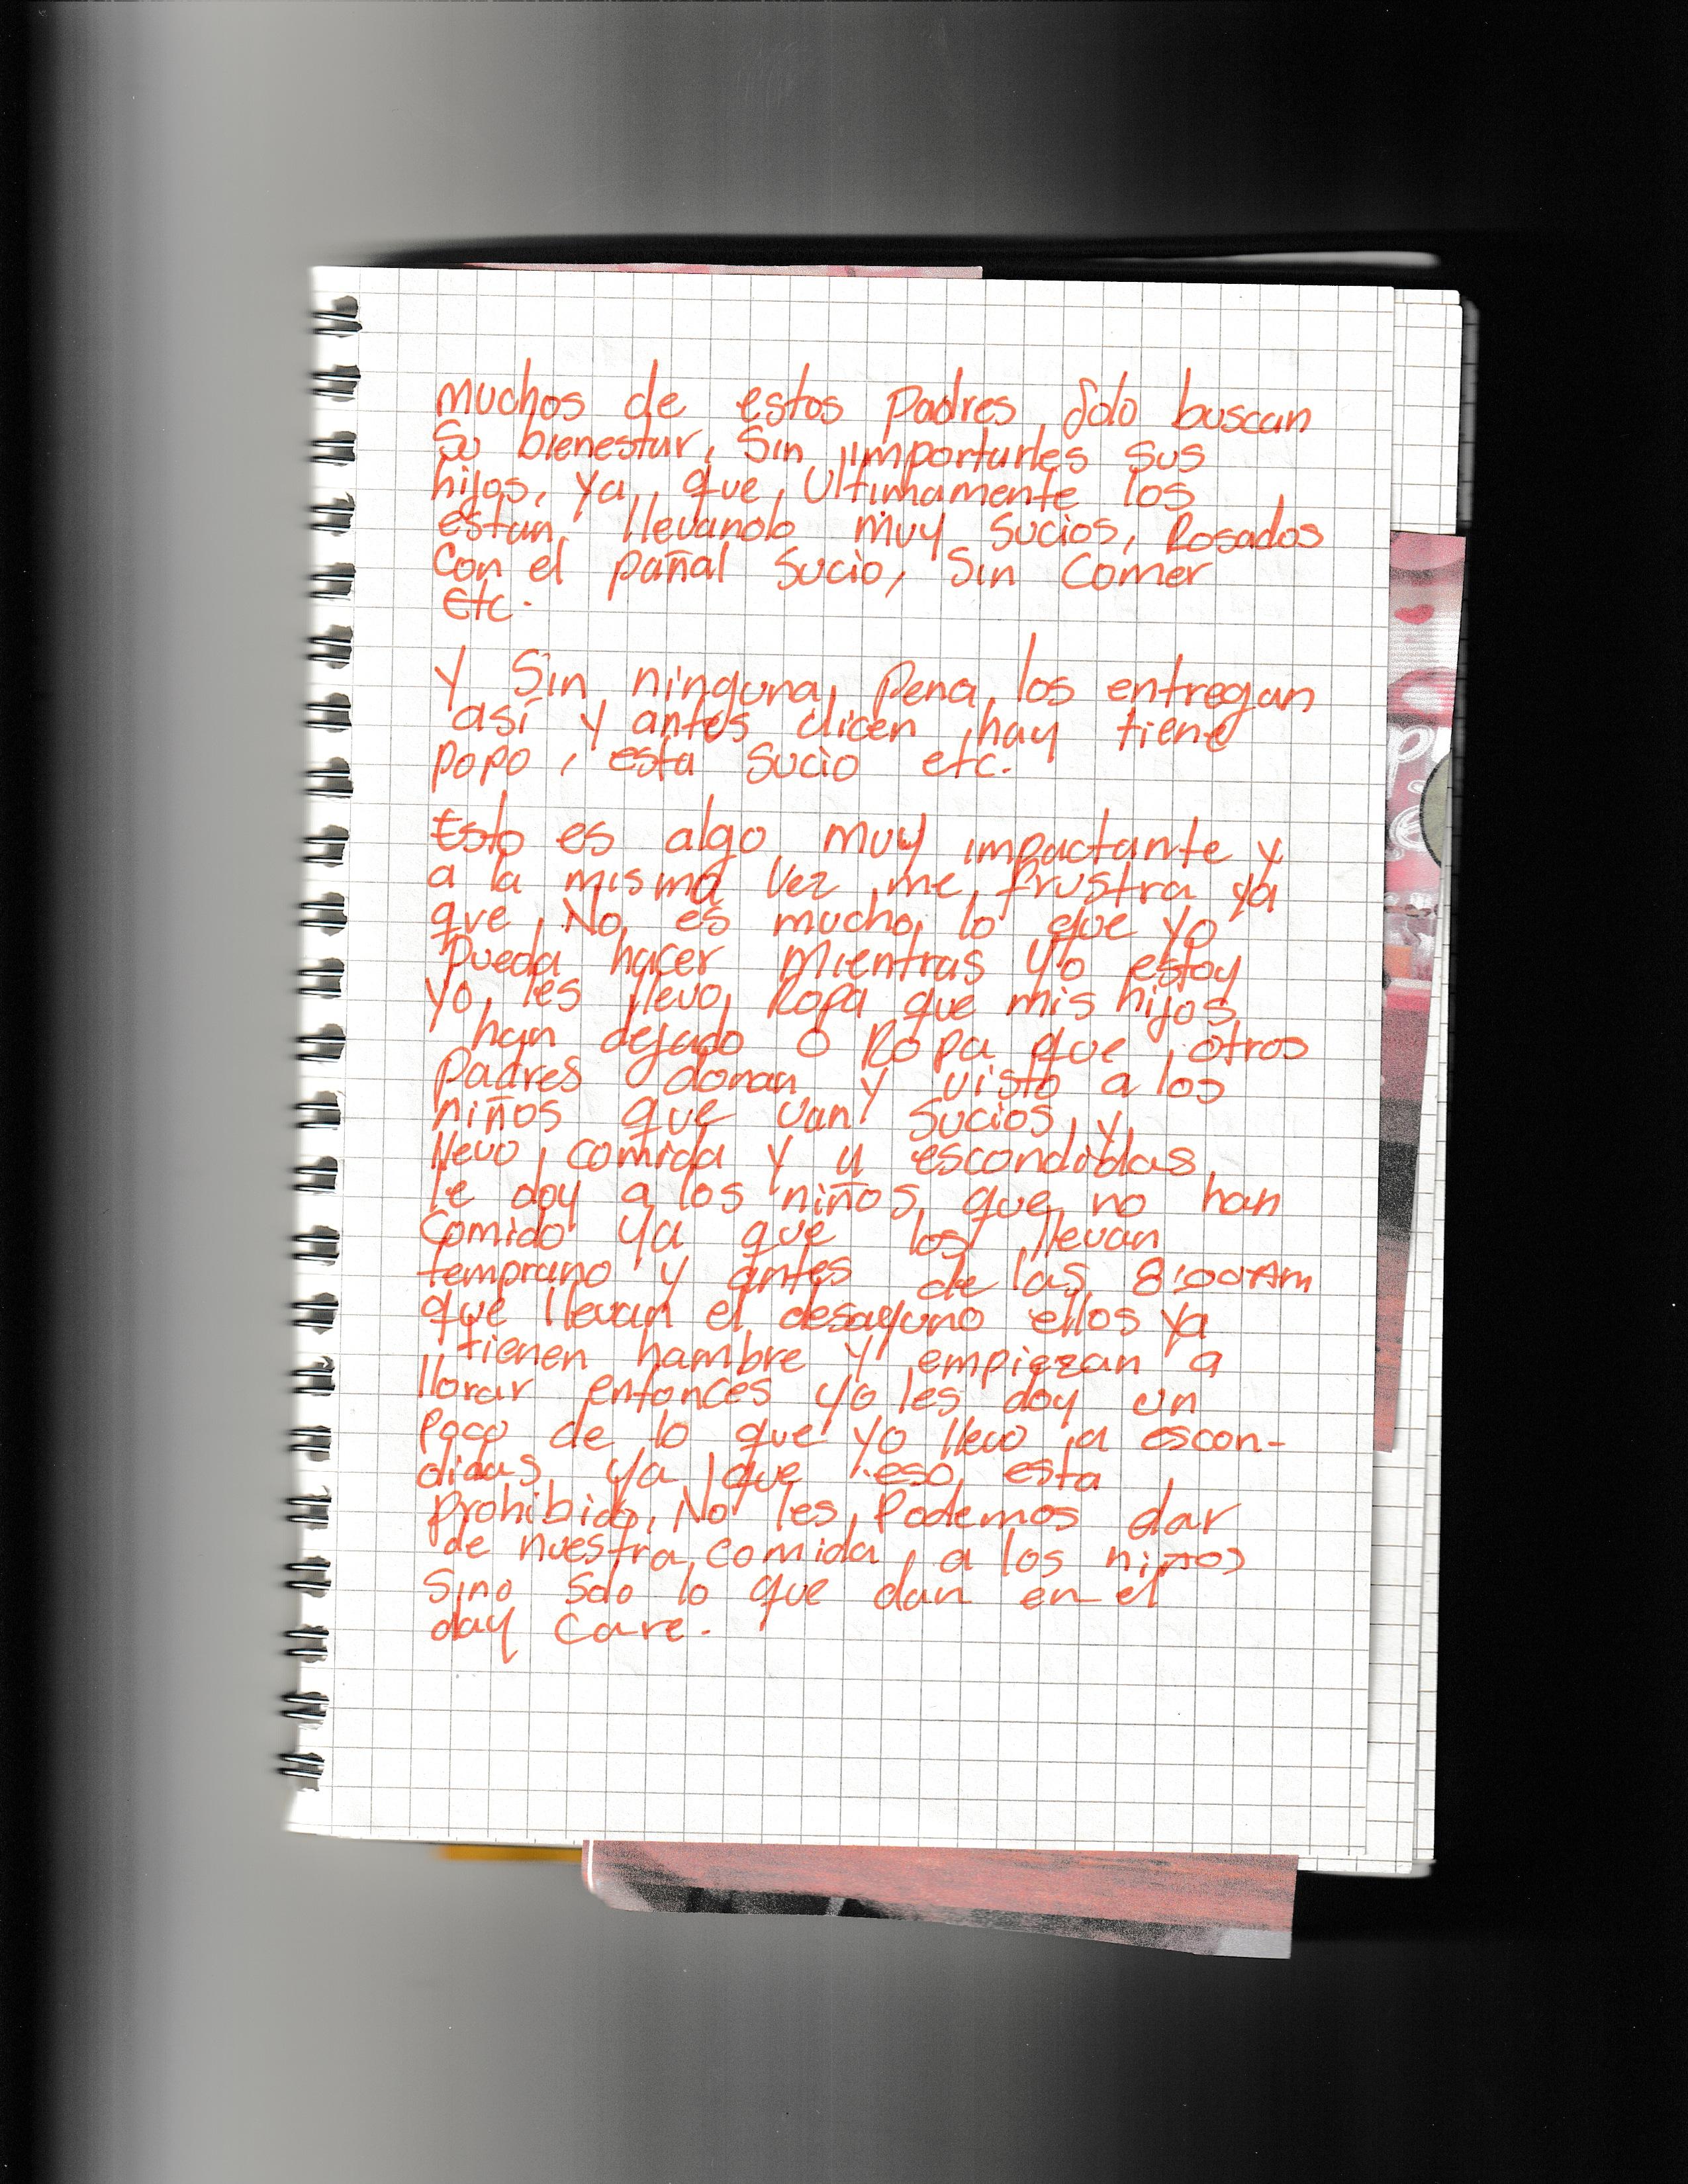 muchos de estos padres solo buscan
su bienestar, sin importarles sus
hijos, ya que ultimamente los
estan llevando muy sucios, Rosados
con el pañal sucio, sin comer
etc.
y sin ninguna pena los entregan
así y antes dicen hay tiene
popo, esta sucio etc.
Esto es algo muy impactante y
a la misma vez me frustra ya
que No es mucho lo que yo
pueda hacer mientras yo estoy
yo les llevo Ropa que mis hijos
han dejado o Ropa que otros
padres donan y visto a los
niños que van sucios y
llevo comida y a escondidas
le doy a los niños que no han
comido ya que los llevan
temprano y antes de las 8:00 Am
que llevan el desayuno ellos ya
tienen hambre y empiezan a
llorar entonces yo les doy un
poco de lo que yo llevo a escon-
didas ya que eso esta
prohibido, No les podemos dar
de nuestra comida a los niños
sino solo lo que dan en el
day care.